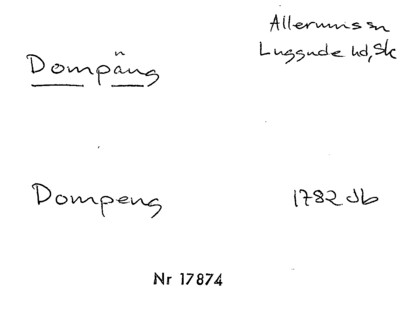 Allerums sn
Luggude hd, Sk
Dompäng
Dompeng
1782 Jb
Nr 17874